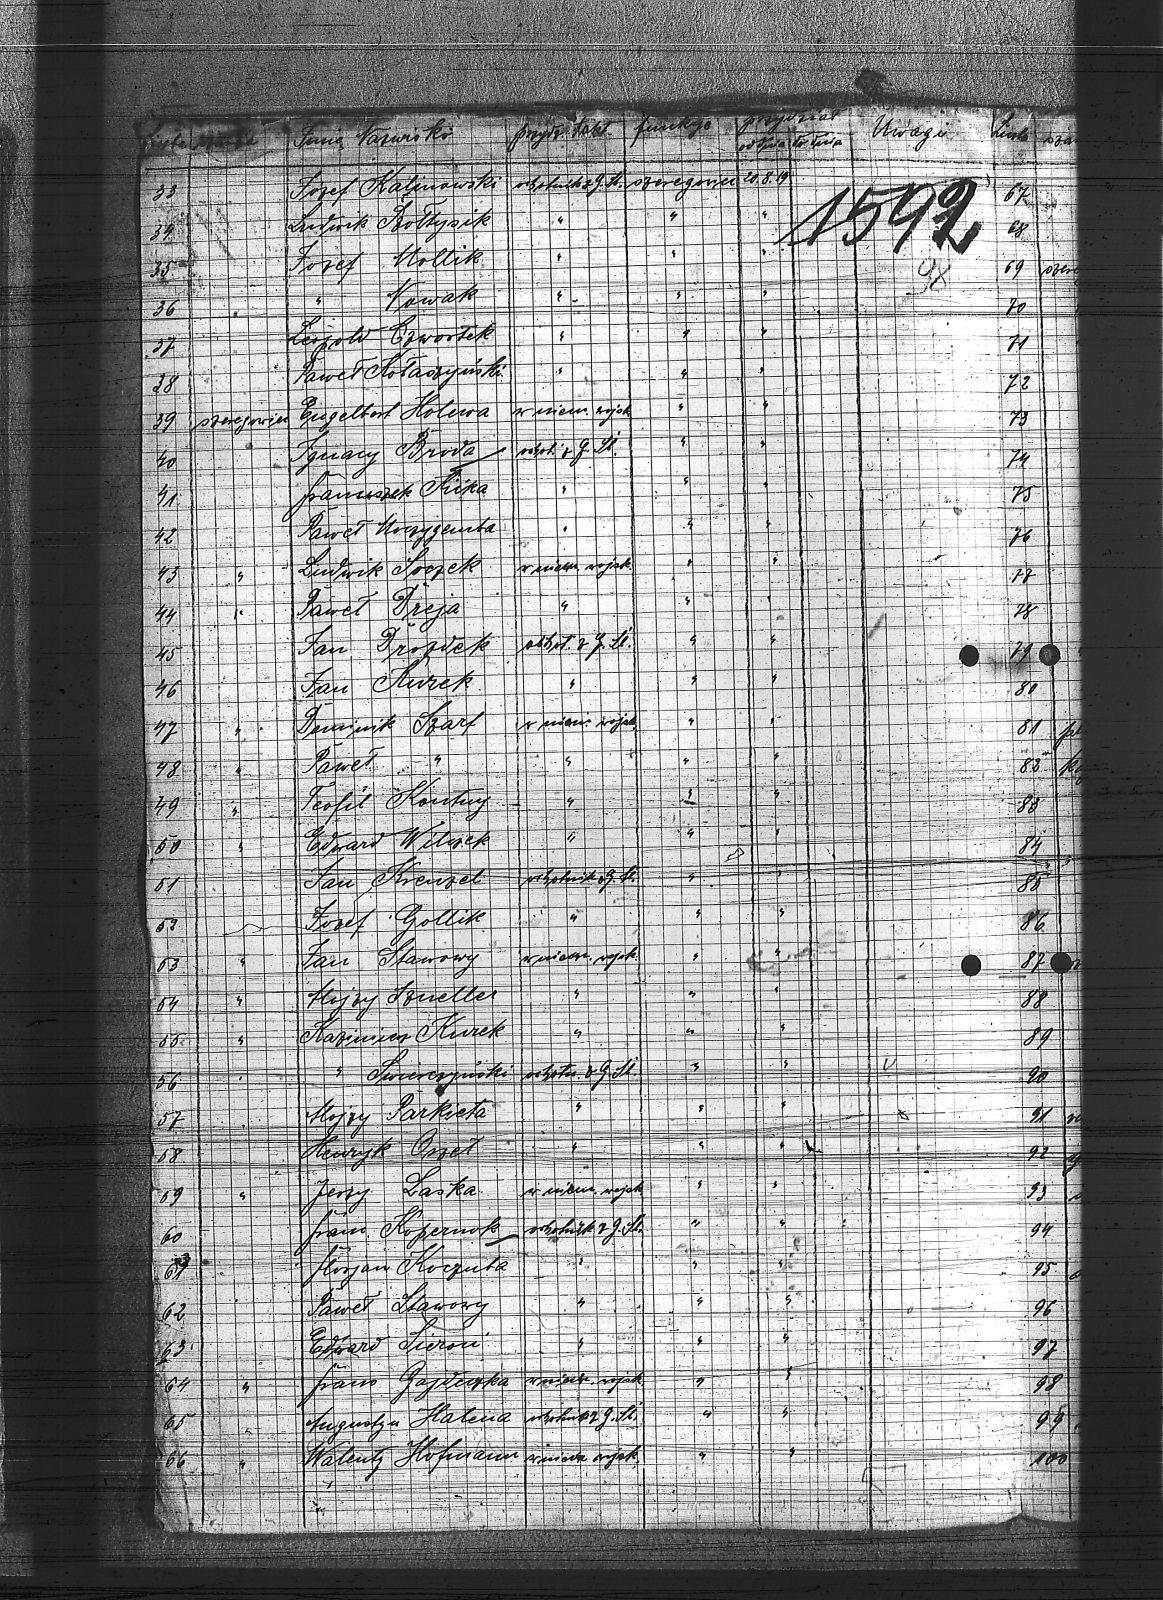 Liczba Imię Nazwisko przyds. funkcje przydział Uwaga Liczba
od dnia do dnia
33 Józef Kalinowski ochotnik z G. Śl. szeregowiec 20.8.19 67
1592
34 Ludwik Bołtysik " " " 68
98
35 Józef Mollik " " " 69
36 " Nowak " " " 70
37 Leopold Czwortek " " " 71
38 Paweł Kołaczyński " " " 72
39 szeregowiec Engelbert Holewa w niem. wojsk. " " 73
40 Ignacy Broda ochot. z G. Śl. " " 74
41 Franciszek Kika " " " 75
42 Paweł Moczygemba " " " 76
43 " Ludwik Soczek w niem. wojsk. " " 77
44 " Paweł Dreja " " " 78
45 Jan Drozdek ochot. z G. Śl. " " 79
46 Jan Kurek " " " 80
47 " Dominik Szarf w niem. wojsk. " " 81
48 " Paweł " " " " 82
49 " Teofil Kontny " " " 83
50 " Edward Wilczek " " " 84
51 Jan Krenzel ochotnik z G. Śl. " " 85
52 Józef Gollik " " " 86
53 " Jan Stawowy w niem. wojsk. " " 87
54 " Alojzy Szneller " " " 88
55 " Kazimierz Kurek " " " 89
56 " Świerczyński ochotn. z G. Śl. " " 90
57 Alojzy Parkieta " " " 91
58 Henryk Orzeł " " " 92
59 " Jerzy Laska w niem. wojsk. " " 93
60 Franc. Kopernok ochotnik z G. Śl. " " 94
61 Florjan Koczuba " " " 95
62 Paweł Stawowy " " " 96
63 Edward Sieroń " " " 97
64 " Franc Gajduczka w niem. wojsk. " " 98
65 Augustyn Halena ochotnik z G. Śl. " " 99
66 " Walenty Hofmann w niem. wojsk. " " 100